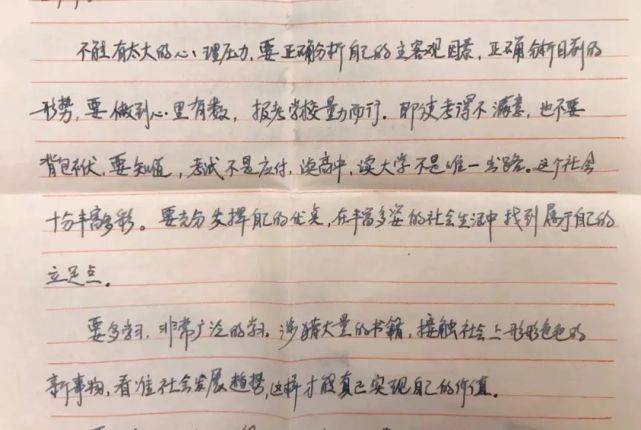 不能有太大的心理压力,要正确分析自己的主客观因素,正确分析目前的
形势,要做到心里有数,报考学校量力而行。即使考得不满意,也不要
背包袱,要知道,考试不是应付,读高中,读大学不是唯一出路。这个社会
十分丰富多彩。要充分发挥自己的优点,在丰富多姿的社会生活中找到属于自己的
立足点。
要多学习,非常广泛的学习。涉猎大量的书籍,接触社会上形形色色的
新事物,看准社会发展趋势,这样才能真正实现自己的价值。